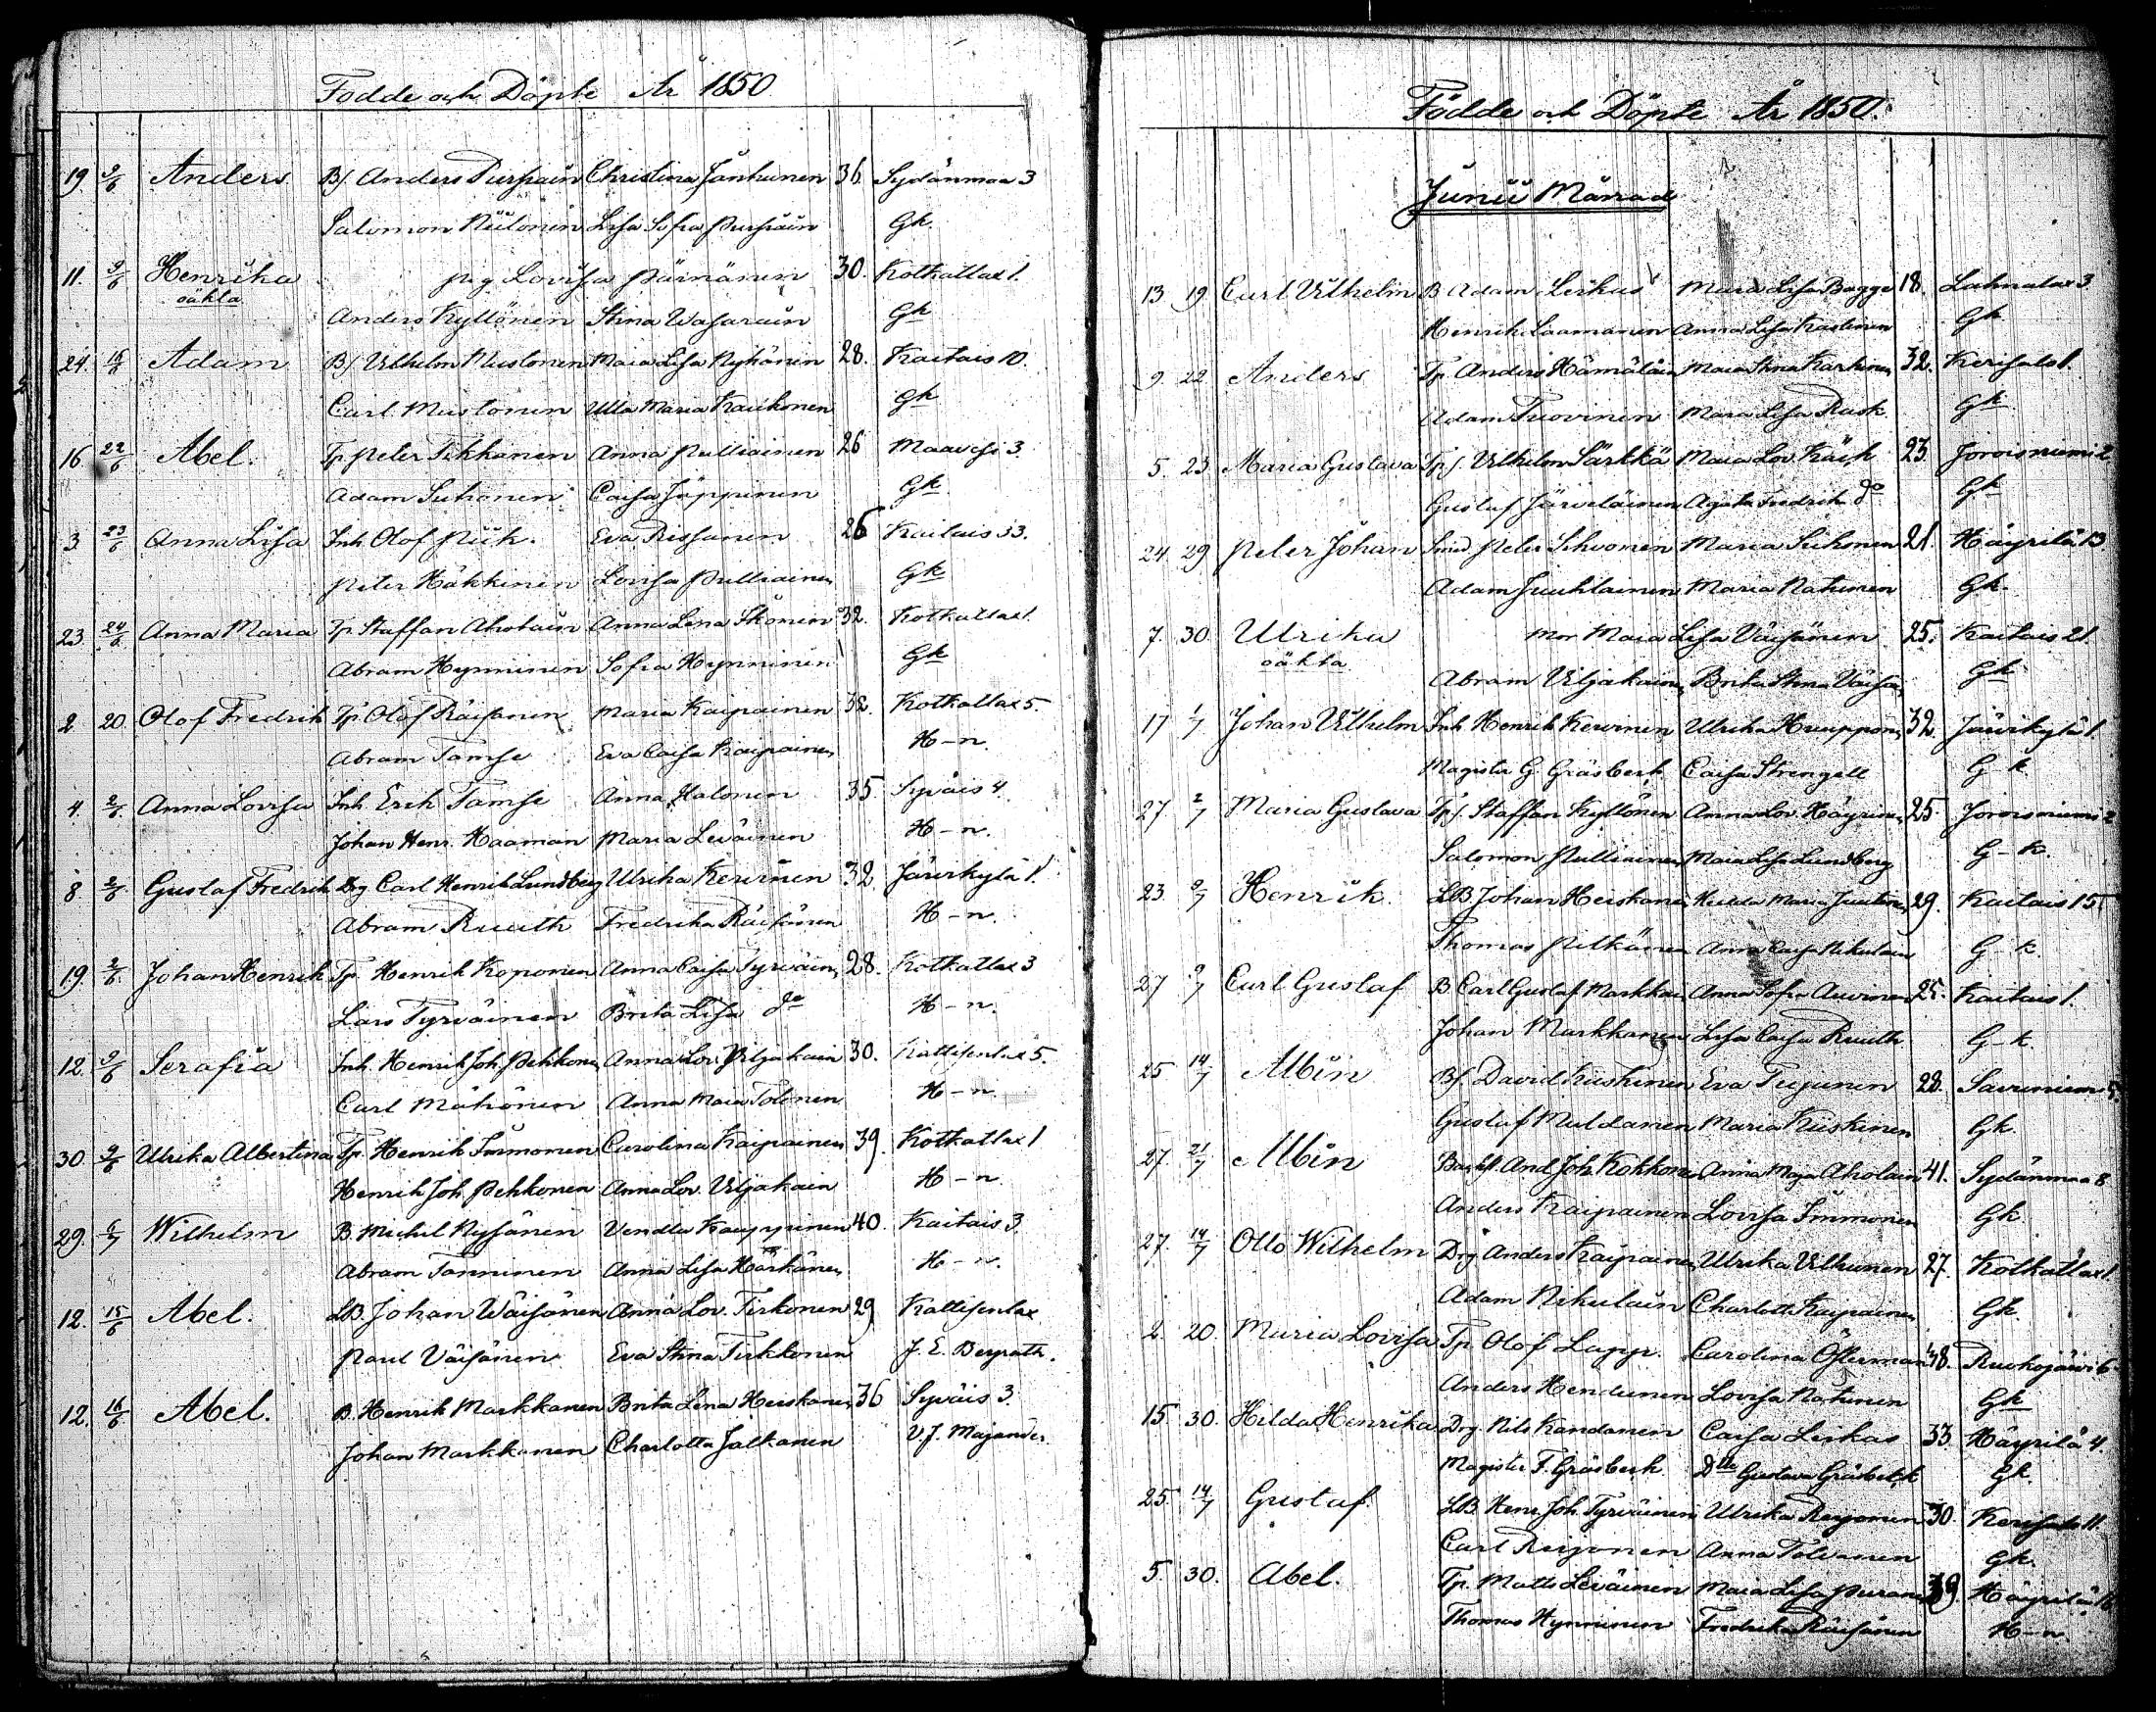 Födde och Döpte År 1850
19 9/6 Anders B/ Anders Pursiain Christina Janhunen 36. Sydänmaa 3
Salomon Niilonen Lisa Sofia Pursiain Gk.
11. 9/6 Henrika pig Lovisa Pärnänen 30. Kotkatlax 1.
oäkta
Anders Kyllönen Stina Wasarain Gk
24. 16/6 Adam B/ Vilhelm Mustonen Maia Lisa Nykänen 28. Kaitais 10.
Carl Mustonen Ulla Maria Kaukonen Gk
16 22/6 Abel. Tp Peter Tikkanen Anna Pulliainen 26 Maavesi 3.
Adam Suhonen Caisa Jäppinen Gk
3 23/6 Anna Lisa Inh Olof Piik. Eva Rissanen 26 Kaitais 33.
Peter Häkkinen Lovisa Pulliainen Gk
23 24/6 Anna Maria Tp Staffan Aholain Anna Lena Ikonen 32. Kotkatlax 1.
Abram Hynninen Sofia Hynninen Gk
2 20. Olof Fredrik Tp Olof Räisänen Maria Kaipainen 32. Kotkatlax 5.
Abram Tamse Eva Caisa Kaipainen H-n.
4. 2/6. Anna Lovisa Inh. Erik Tamse Anna Halonen 35 Syväis 4.
Johan Henr. Haaman Maria Leväinen H-n.
8. 2/6. Gustaf Fredrik Drg Carl Henrik Lundberg Ulrika Kervinen 32 Järvikylä 1.
Abram Ruuth Fredrika Räisänen H-n.
19. 2/6. Johan Henrik Tp. Henrik Koponen Anna Caisa Tyrväin 28. Kotkatlax 3
Lars Tyrväinen Brita Lisa do H-n.
12. 9/6 Serafia Inh. Henrik Joh. Pehkonen Anna Lov. Viljakain 30. Kattisenlax 5.
Carl Mähönen Anna Maia Tolonen H-n.
30. 9/6 Ulrika Albertina Tp. Henrik Immonen Carolina Kaipainen 39. Kotkatlax 1
Henrik Joh. Pehkonen Anna Lov. Viljakain H-n
29. 6/7 Wilhelm B. Michel Nyssönen Vendla Kauppinen 40. Kaitais 3.
Abram Tanninen Anna Lisa Härkänen H-n.
12. 15/6 Abel. LB. Johan Wäisänen Anna Lov. Tirkonen 29 Kattisenlax
Paul Väisänen Eva Stina Tirkkonen J. E. Bergroth.
12. 16/6 Abel. B. Henrik Markkanen Brita Lena Heiskanen 36 Syväis 3.
Johan Markkanen Charlotta Jalkanen V. J. Majander
Födde och Döpte År 1850.
Junii Månad
13 19 Carl Vilhelm B Adam Leskus Maria Lisa Bagge 18. Lahnalax 3
Henrik Laamanen Anna Lisa Kastinen Gk
9. 22 Anders Tp. Anders Hämäläin Maia Stina Karhinen 32. Kerisalo 1.
Adam Tuovinen Maia Lisa Rask Gk
5. 23 Maria Gustava Tp/. Vilhelm Särkkä Maia Lov. Käch 23. Joroisniemi 2
Gustaf Järveläinen Agata Fredrika do Gk
24 29 Peter Johan Smed Peter Sihvonen Maria Suhonen 21. Häyrilä 13
Adam Juuhlainen Maria Natunen Gk.
7. 30. Ulrika Mor Maia Lisa Väisänen 25. Kaitais 21.
oäkta
Abram Viljakainen Brita Stina Väisän Gk
17 1/7 Johan Vilhelm Inh Henrik Kervinen Ulrika Huupponen 32. Järvikylä 1.
Magister G. Gräsbeck Caisa Strengell G-k
27 2/7 Maria Gustava Tp/. Staffan Kyllönen Anna Lov. Häyrinen 25. Joroisniemi 2
Salomon Pulliainen Maia Lisa Lundberg G-k.
23. 9/7 Henrik. LB. Johan Heiskanen Hedda Maria Juutinen 29. Kaitais 15
Thomas Pitkänen Anna Caisa Nikulain G-k.
27 9/7 Carl Gustaf B Carl Gustaf Markkan Anna Sofia Auvinen 25. Kaitais 1.
Johan Markkanen Lisa Caisa Ruuth G-k.
25 14/7 Albin B/. David Kiiskinen Eva Teijunen 28. Savuniemi 5.
Gustaf Muldanen Maria Kiiskinen Gk.
27. 21/7 Albin And. Joh. Kokkonen Anna Maja Aholain 41. Sydänmaa 8
Anders Kaipainen Lovisa Immonen Gk
27. 14/7 Otto Wilhelm Drg Anders Kaipainen Ulrika Vilhunen 27. Kotkatlax 1.
Adam Nikulain Charlotta Kaipainen Gk.
2. 20. Maria Lovisa Tp. Olof Lapp. Carolina Österman 48. Ruokojärvi 6
Anders Hendunen Lovisa Natunen Gk
15 30. Hilda Henrika Drg. Nils Kandanen Caisa Leskas 33. Häyrilä 4.
Magister F. Gräsbeck Dlle Gustava Gräsbeck Gk.
25. 14/7 Gustaf. LB Henr. Joh. Tyrväinen Ulrika Reijonen 30. Kerisalo 11.
Carl Reijonen Anna Tolvanen Gk.
5. 30. Abel. Tp. Matts Leväinen Maia Lisa Puranen 39. Häyrilä 16
Thomas Hynninen Fredrika Räisänen H-n.